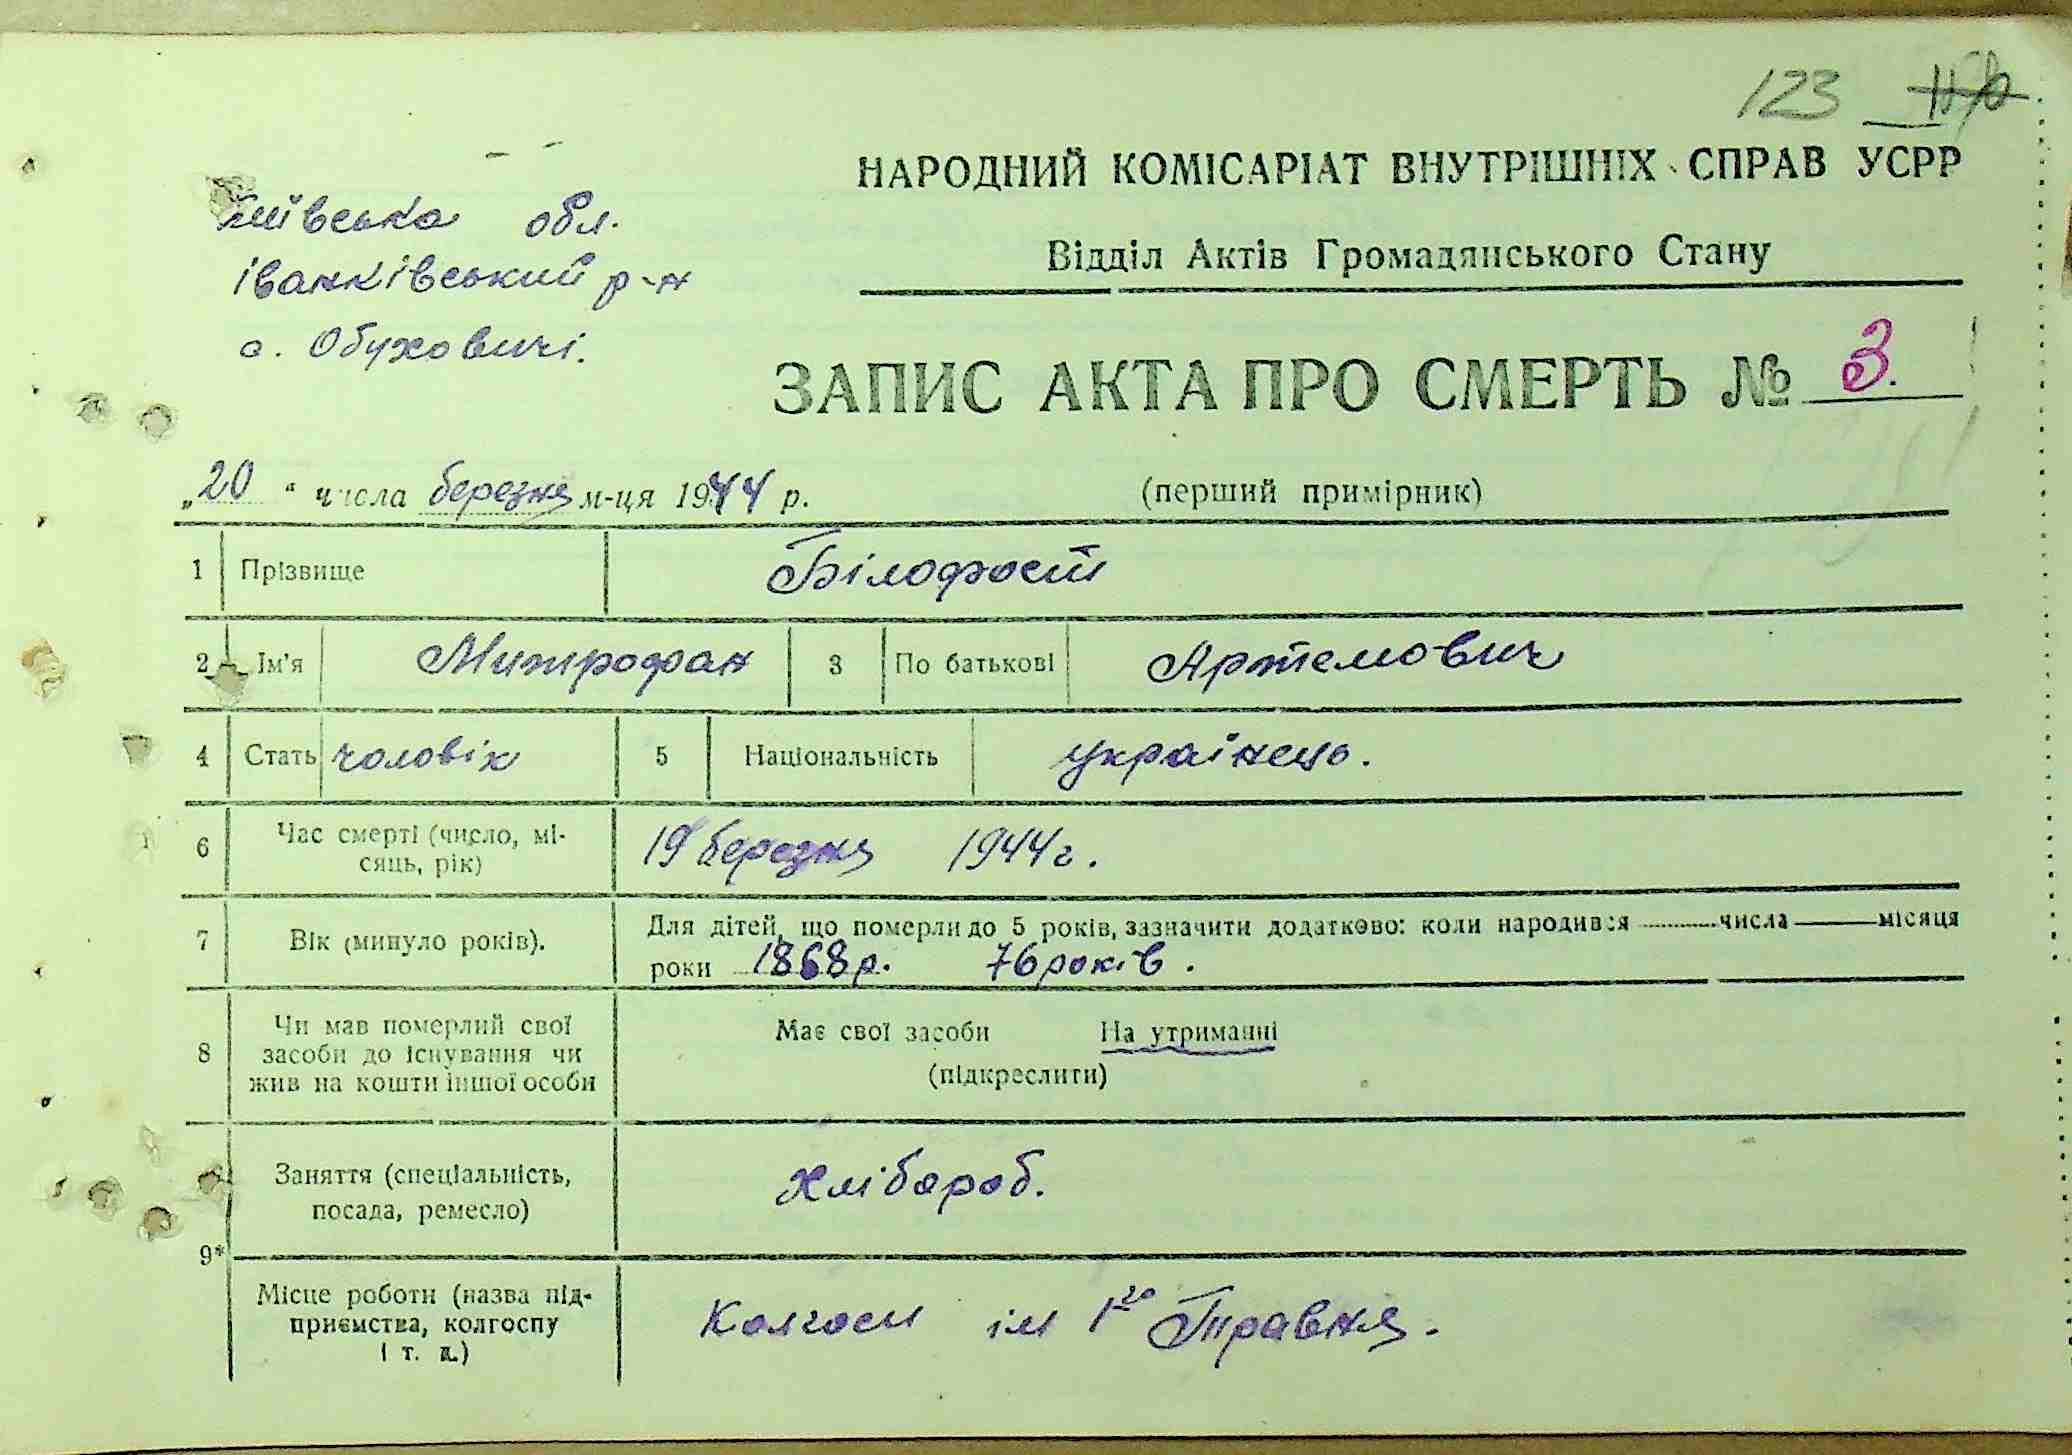 123
Київська обл.
Іванківський р-н
с. Обуховичі.
НАРОДНИЙ КОМІСАРІАТ ВНУТРІШНІХ СПРАВ УСРР
Відділ Актів Громадянського Стану
ЗАПИС АКТА ПРО СМЕРТЬ № 3.
„20“ числа березня м-ця 1944 р.
(перший примірник)
1 Прізвище Білофост
2 Ім'я Митрофан 3 По батькові Артемович
4 Стать чоловік 5 Національність українець.
6 Час смерті (число, мі-
сяць, рік) 19 березня 1944 г.
7 Вік (минуло років). Для дітей, що померли до 5 років, зазначити додатково: коли народився числа місяця
роки 1868 р. 76 років.
8 Чи мав померлий свої
засоби до існування чи
жив на кошти іншої особи
Має свої засоби На утриманні
(підкреслити)
Заняття (спеціальність,
посада, ремесло) Хлібороб.
9*
Місце роботи (назва під-
приємства, колгоспу
і т. д.)
Колгосп ім 1го Травня.